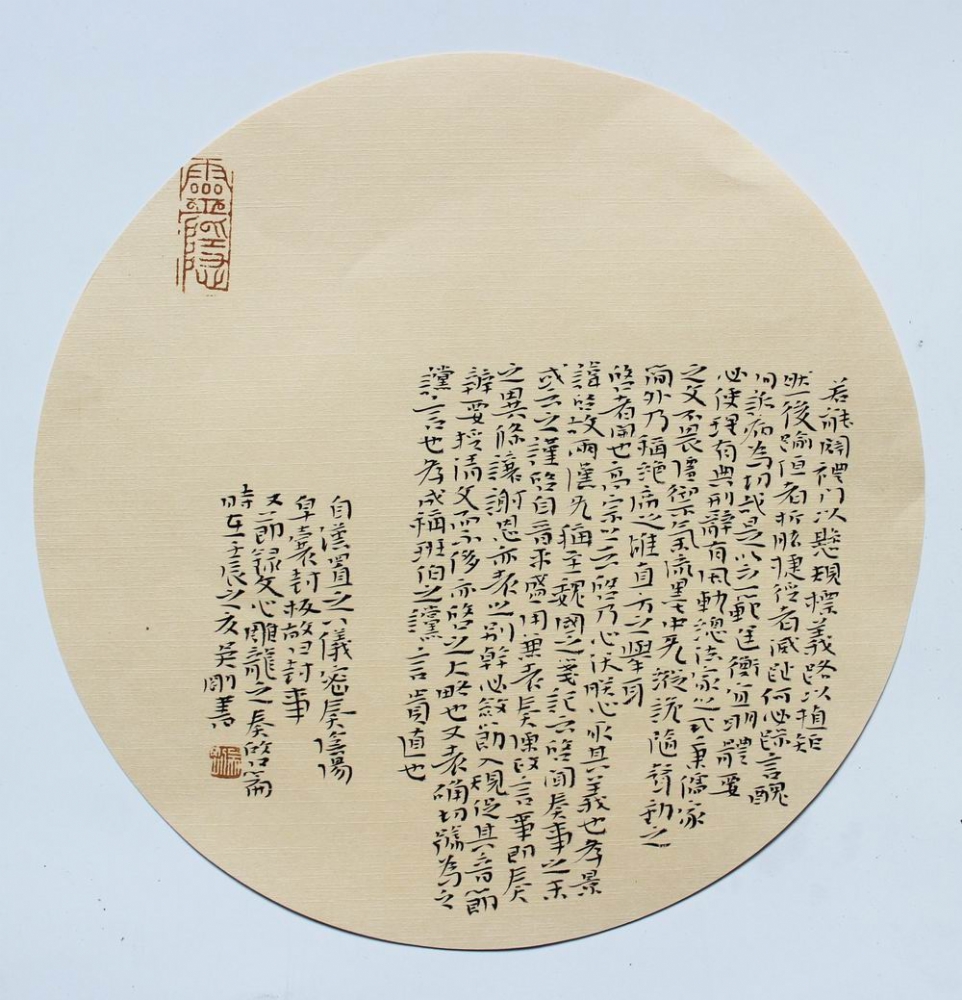 若能闢禮門以懸規標義路以植矩
然後踰垣者折肱捷徑者滅趾何必躁言醜
句詬病為切哉是以立範運衡宜明體要
必使理有典刑辭有風軌總法家之式秉儒家
之文不畏彊禦氣流墨中无縱詭隨聲動之
簡外乃稱絕席之雄直方之舉耳
啓者開也高宗云啓乃心沃朕心取其義也孝景
諱啓故兩漢无稱至魏國之箋記云啓聞奏事之末
或云之謹啓自晉來盛用兼表奏陳政言事即奏
之異條讓爵謝恩亦表之別幹必斂飭入規促其音節
辨要輕清文而不侈亦啓之大略也又表确切號為之
讜言也孝成稱班伯之讜言貴直也
自漢置之八儀密奏陰陽
皁囊封板故曰封事
又節錄文心雕龍之奏啓篇
時在壬辰之亥吳剛書
靈隱